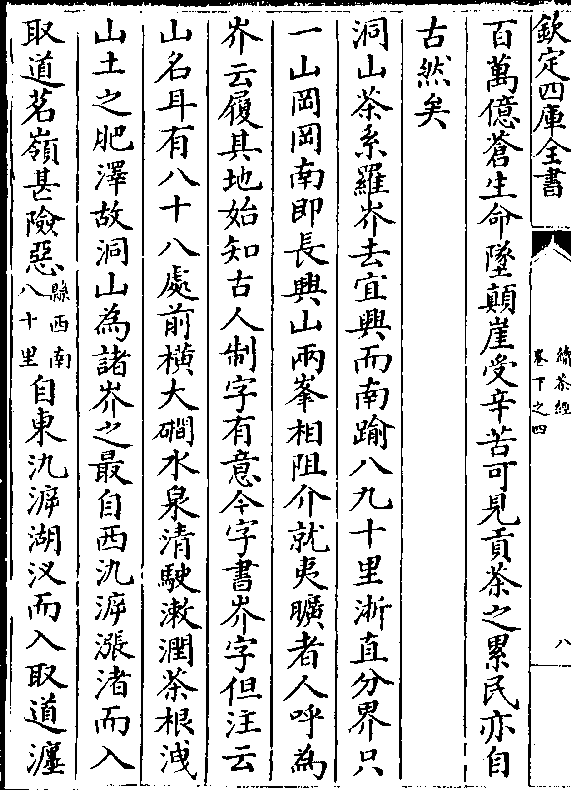 欽定四庫全書
續茶經
卷下之四
八
百萬億蒼生命墜顛崖受辛苦可見貢茶之累民亦自
古然矣
洞山茶系羅岕去宜興而南踰八九十里浙直分界只
一山岡岡南即長興山兩峯相阻介就夷曠者人呼為
岕云履其地始知古人制字有意今字書岕字但注云
山名耳有八十八處前橫大磵水泉清駛漱潤茶根洩
山土之肥澤故洞山為諸岕之最自西氿溯漲渚而入
取道茗嶺甚險惡縣西南八十里自東氿溯湖㳇而入取道瀍